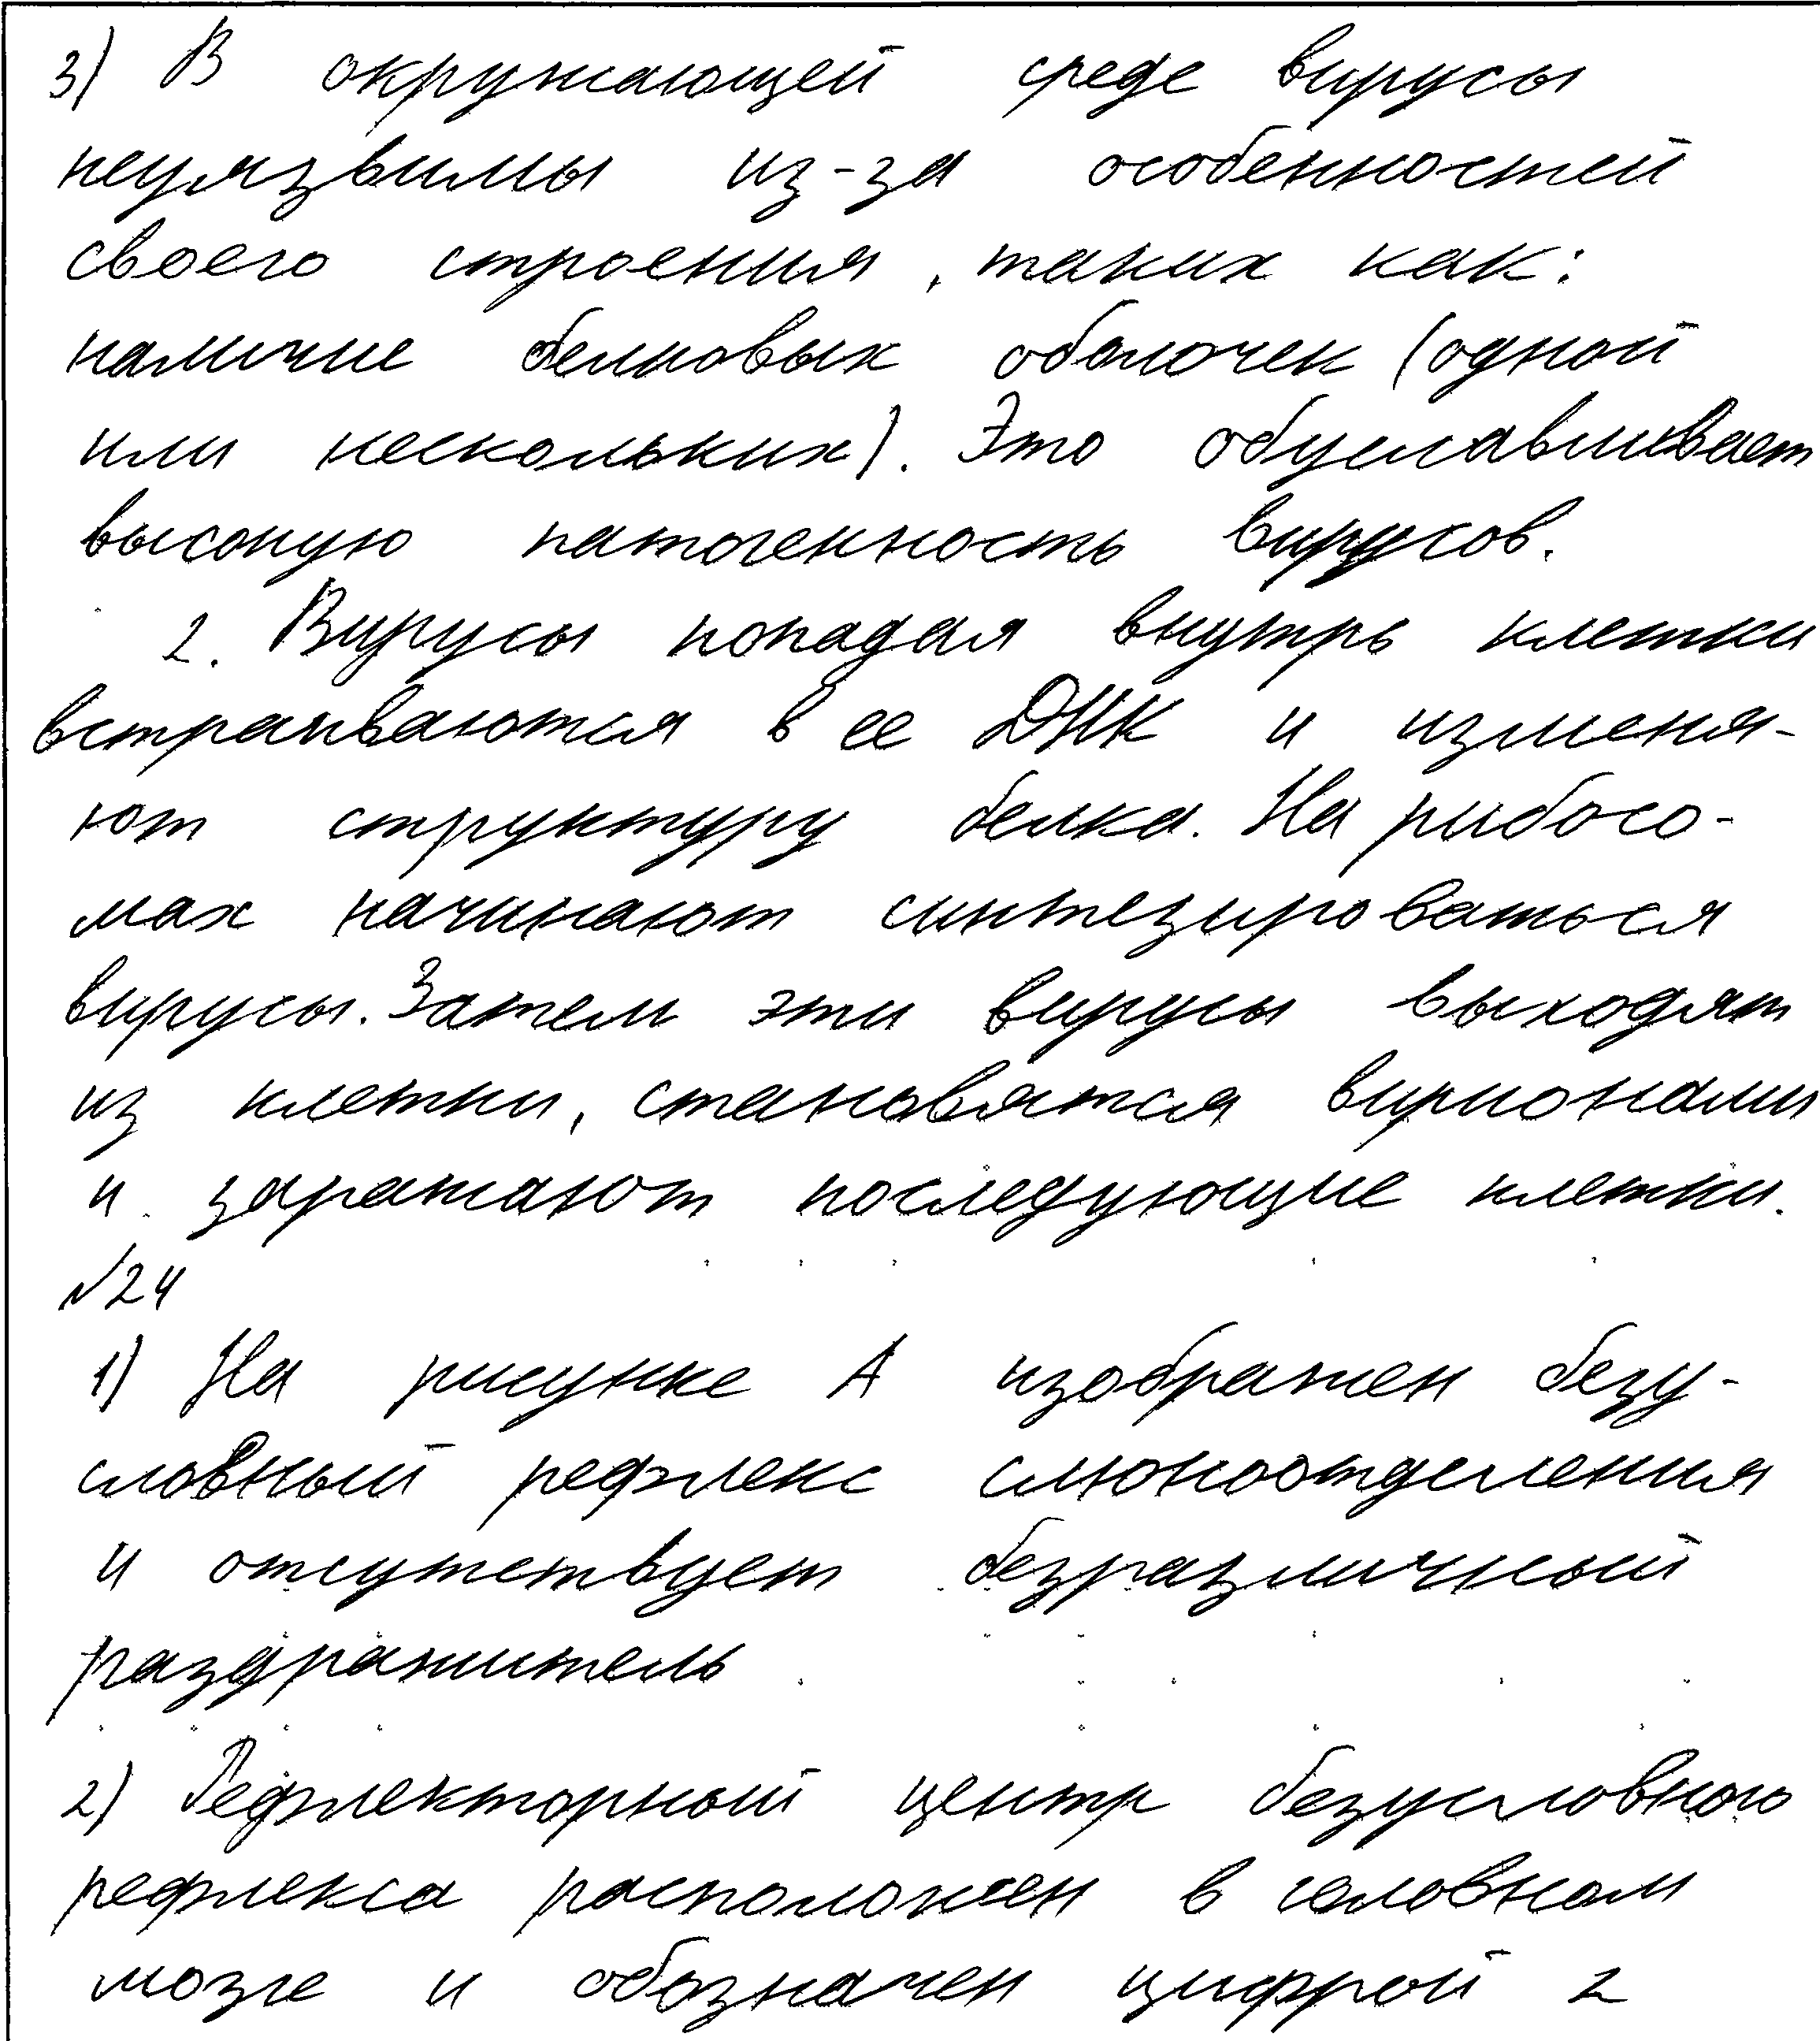 3) В окружающей среде вирусы
неуязвимы из-за особенностей
своего строения, таких как:
наличие белковых оболочек (одной
или нескольких). Это обуславливает
высокую патогенность вирусов.
2. Вирусы попадая внутрь клетки
встраиваются в ее ДНК и изменя-
ют структуру белка. На рибосо-
мах начинают синтезироваться
вирусы. Затем эти вирусы выходят
из клетки, становятся вирионами
и заражают последующие клетки.
№24
1) На рисунке А изображен безу-
словный рефлекс слюноотделения
и отсутствует безразличный
раздражитель
2) Рефлекторный центр безусловного
рефлекса расположен в головном
мозге и обозначен цифрой 2